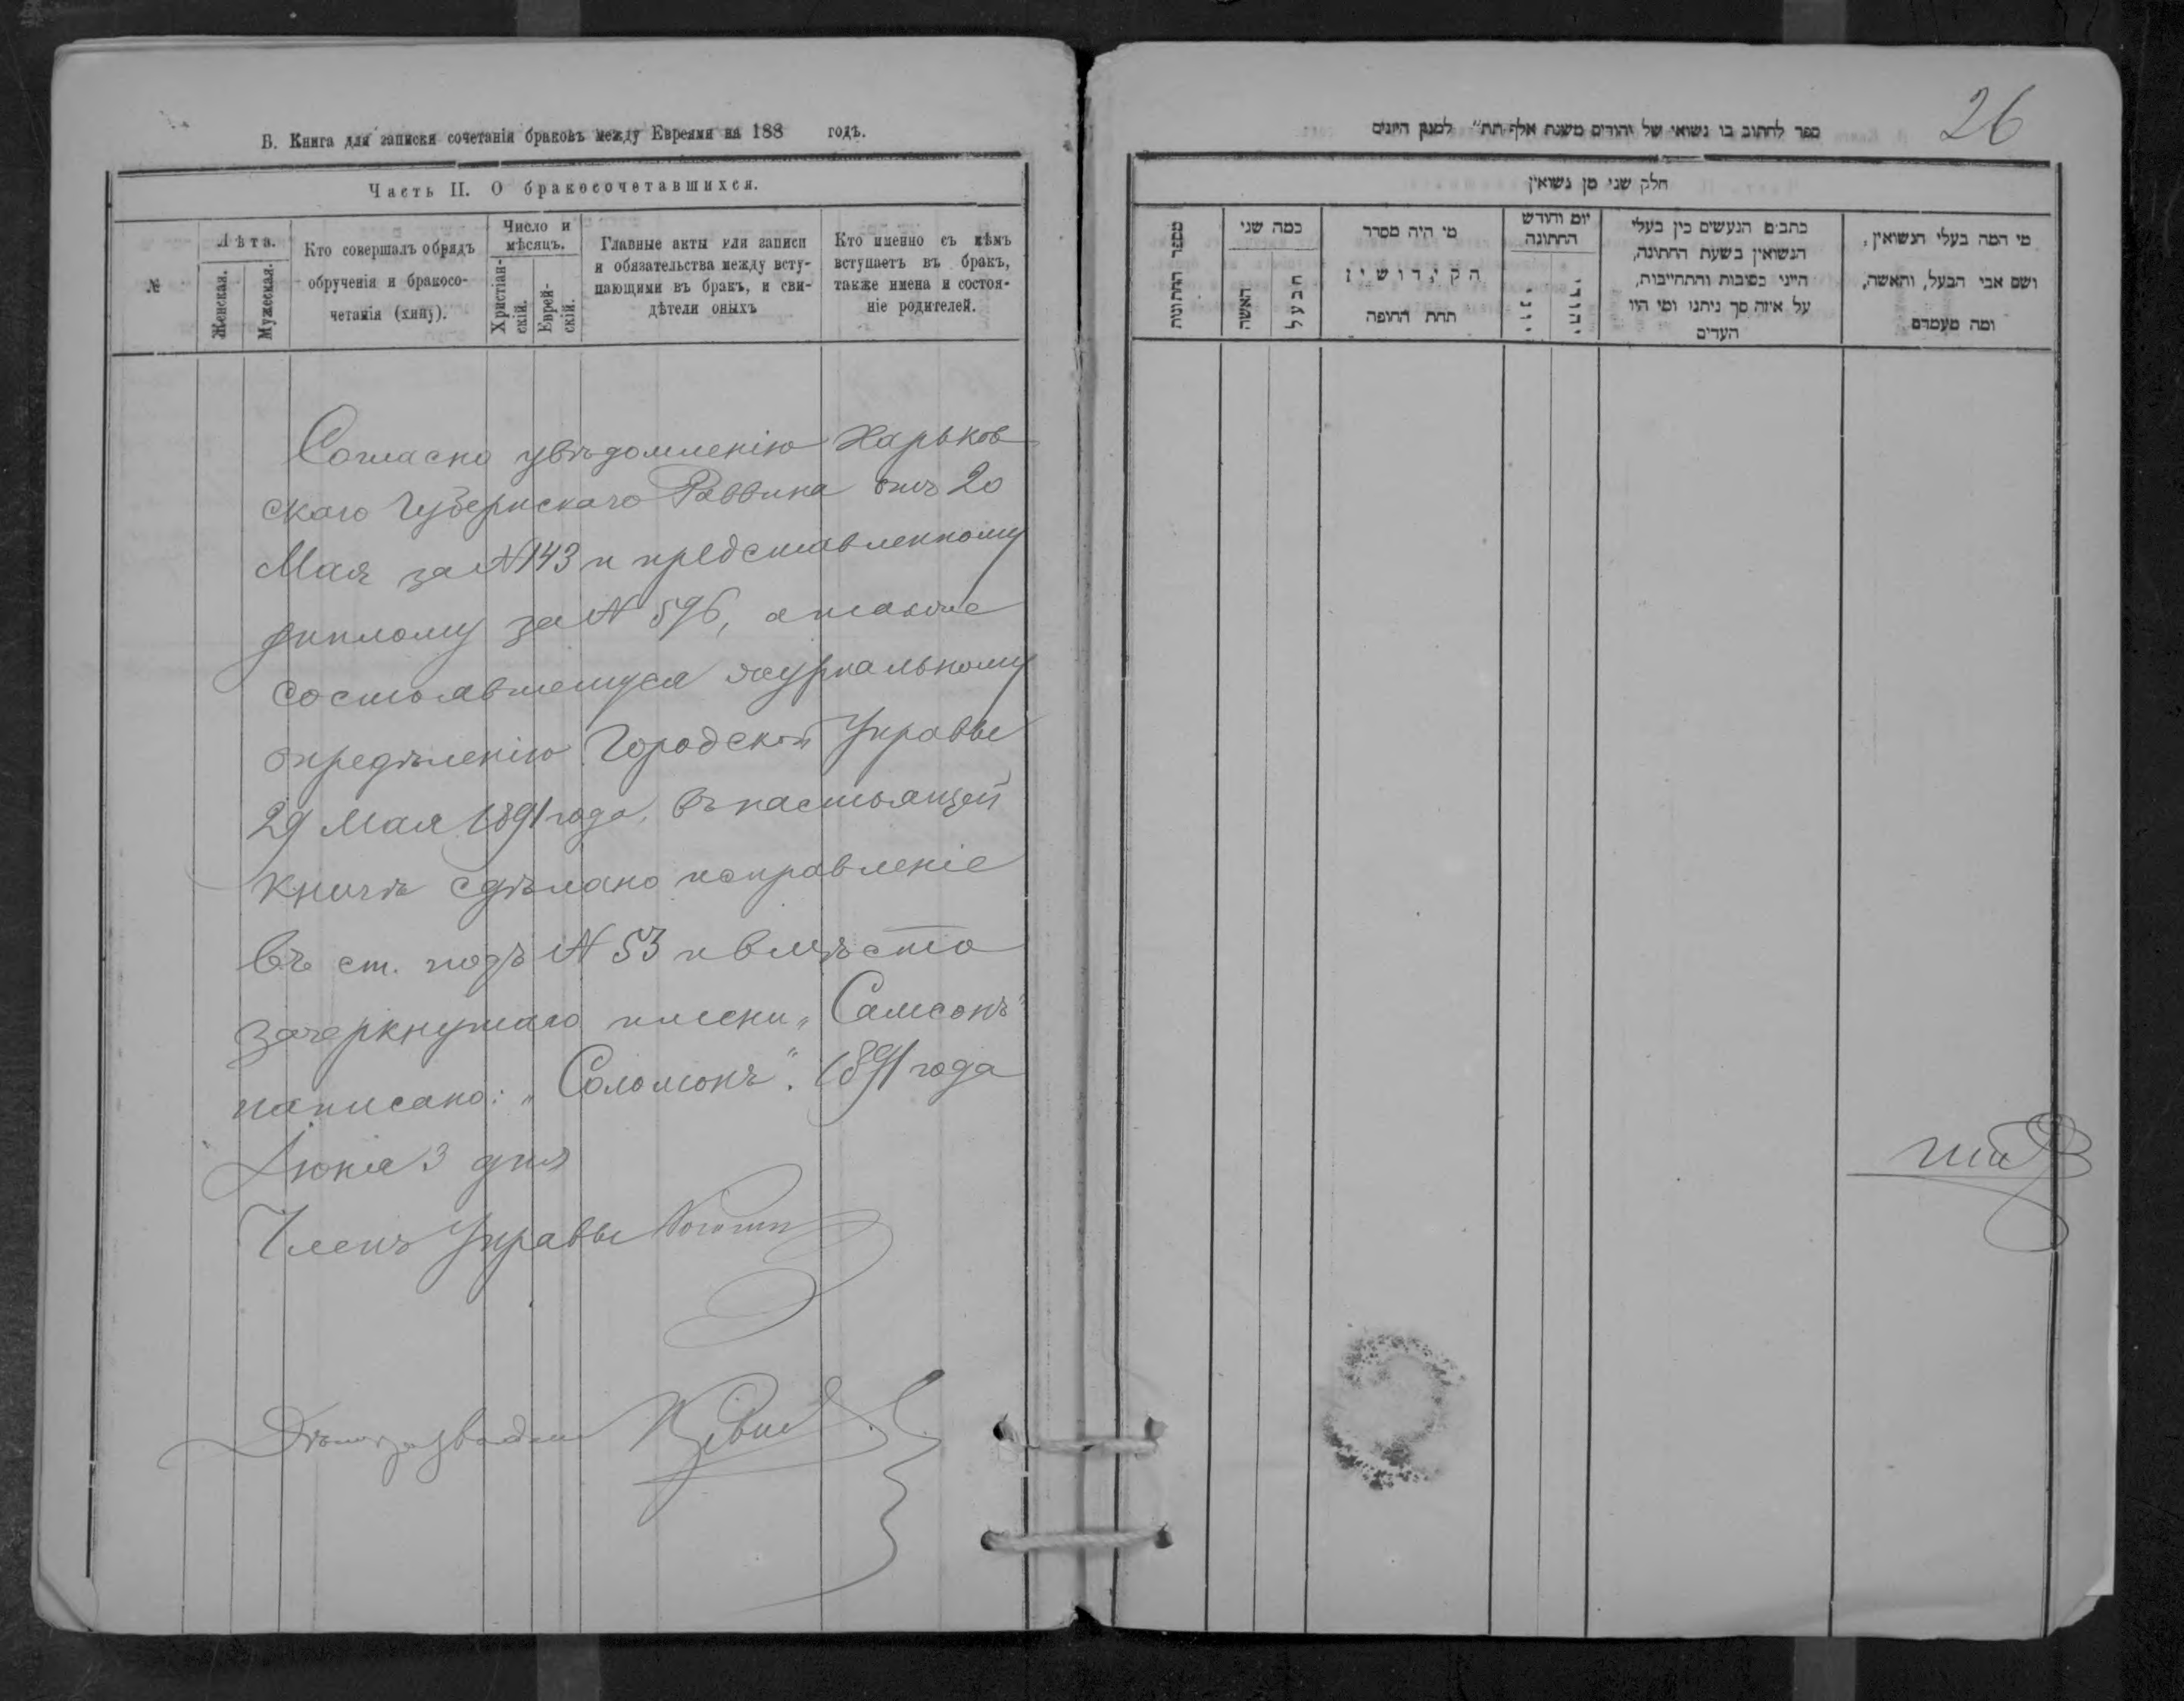 В. Книга для записки сочетанія браковъ между Евреями на 188 годъ.
Часть II. О бракосочетавшихся.
№
Лѣта.
Женская.
Мужеская.
Кто совершалъ обрядъ
обрученія и бракосо-
четанія (хипу).
Число и
мѣсяцъ.
Христіан-
скій.
Еврей-
скій.
Главные акты или записи
и обязательства между всту-
пающими въ бракъ, и сви-
дѣтели оныхъ
Кто именно съ кѣмъ
вступаетъ въ бракъ,
также имена и состоя-
ніе родителей.
Согласно увѣдомленію Харьков
скаго Губернскаго Раввина отъ 20
Мая за № 143 и представленному
диплому за № 596, а также
состоявшемуся журнальному
опредѣленію Городской Управы
29 Мая 1891 года, въ настоящей
книгѣ сдѣлано исправленіе
въ ст. подъ № 53 и вмѣсто
зачеркнутаго имени „Самсонъ"
написано: „Соломонъ". 1891 года
Іюня 3 дня
Членъ Управы
26
ספר לכתוב בו נשואי של יהודים משנת אלף תת״ למנין היונים
חלק שני מן נשואין
מספר החתונות
כמה שני
האשה
הבעל
מי היה מסדר
הקידושין
תחת החופה
יום וחודש
החתונה
יוני
יהודי
כתבים הנעשים בין בעלי
הנשואין בשעת החתונה,
היינו כתובות והתחייבות,
על איזה סך ניתנו ומי היו
העדים
מי המה בעלי הנשואין,
ושם אבי הבעל, והאשה,
ומה מעמדם